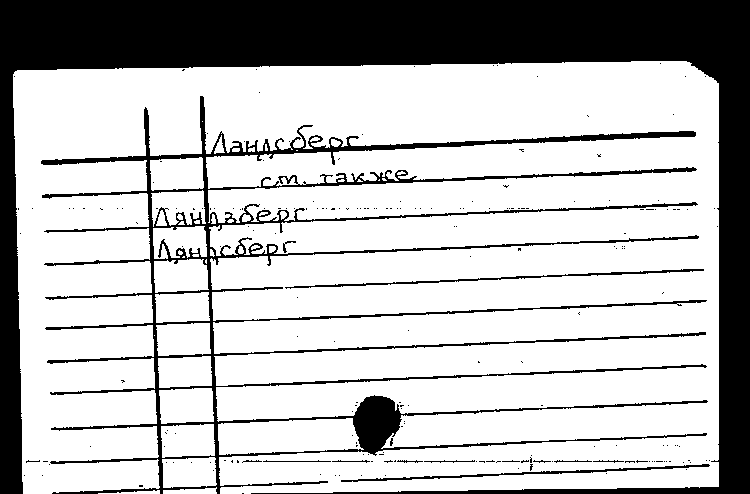 Ландсберг
см. также
Ляндзберг
Ляндсберг